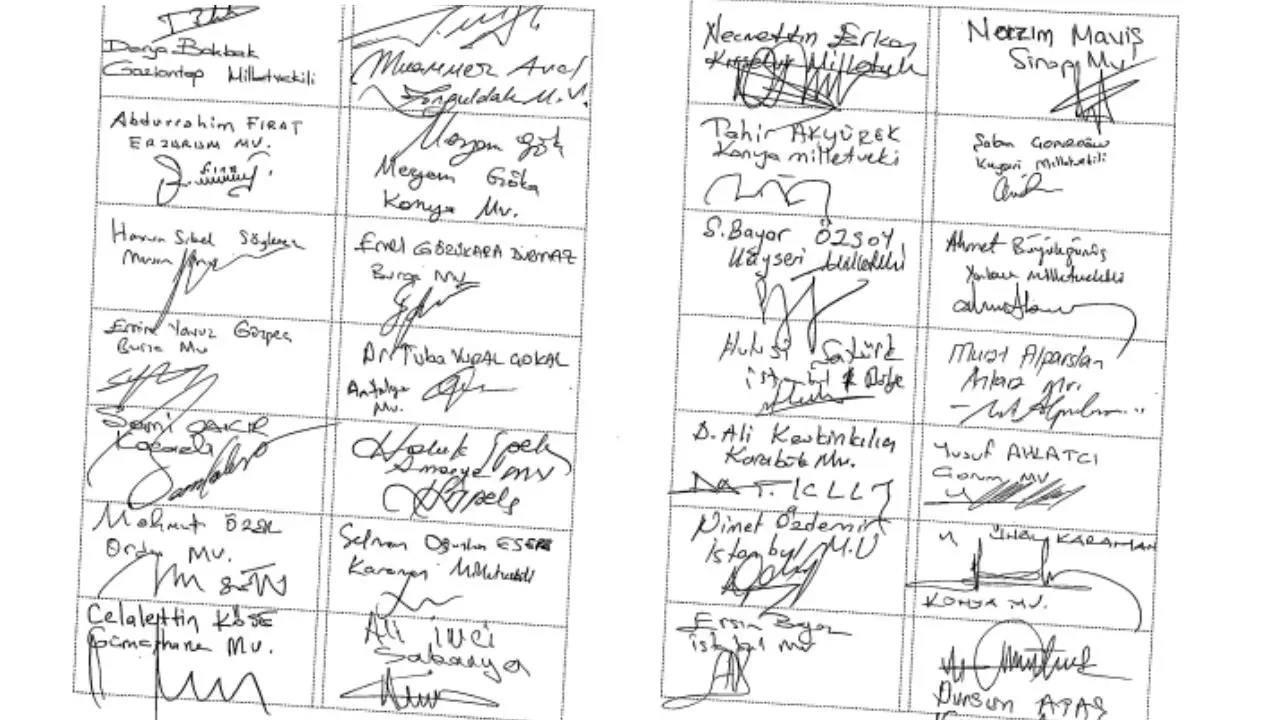 Derya Bakbak
Gaziantep Milletvekili
Muammer Avcı
Zonguldak M.V.
Abdurrahim FIRAT
ERZURUM MV.
Meryem Gök
Meryem Göka
Konya Mv.
Sibel Söyleme
Emel GÖZÜKARA DURMAZ
Bursa MV
Emine Yavuz Gözgeç
Bursa Mv
Dr. Tuba VURAL ÇOKAL
Antalya
Mv.
Sami ÇAKIR
Kocaeli
Haluk İpek
Amasya MV
H. İpek
Mahmut ÖZER
Ordu MV.
Selman Oğuzhan ESER
Karaman Milletvekili
Celalettin KÖSE
Gümüşhane Mv.
Ali İNCİ
Sakarya
Necmettin Erkan
Kırşehir Milletvek
Nazım Maviş
Sinop Mv
Tahir AKYÜREK
Konya milletveki
Şaban
Kayseri Milletvekili
Ş.Bayar ÖZSOY
Kayseri Milletvekili
Ahmet Büyükgümüş
Yalova Milletvekili
Hulusi Şentürk
istanbul
Murat Alparslan
Mv.
Ali Keskinkılıç
Karabük Mv.
Yusuf AHLATCI
Çorum MV
Nimet Özdemir
İstanbul M.V
KARAMAN
KONYA MV.
Ersin Beyaz
İstanbul MV
Dursun ATAŞ